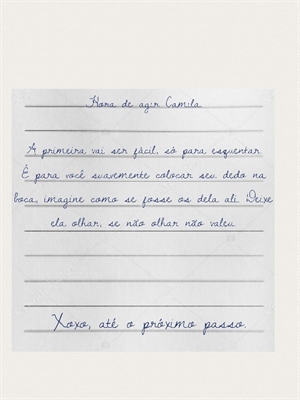 Hora de agir Camila
A primeira vai ser fácil, só para esquentar.
É para você suavemente colocar seu dedo na
boca, imagine como se fosse os dela ali. Deixe
ela olhar, se não olhar não valeu.
Xoxo, até o próximo passo.